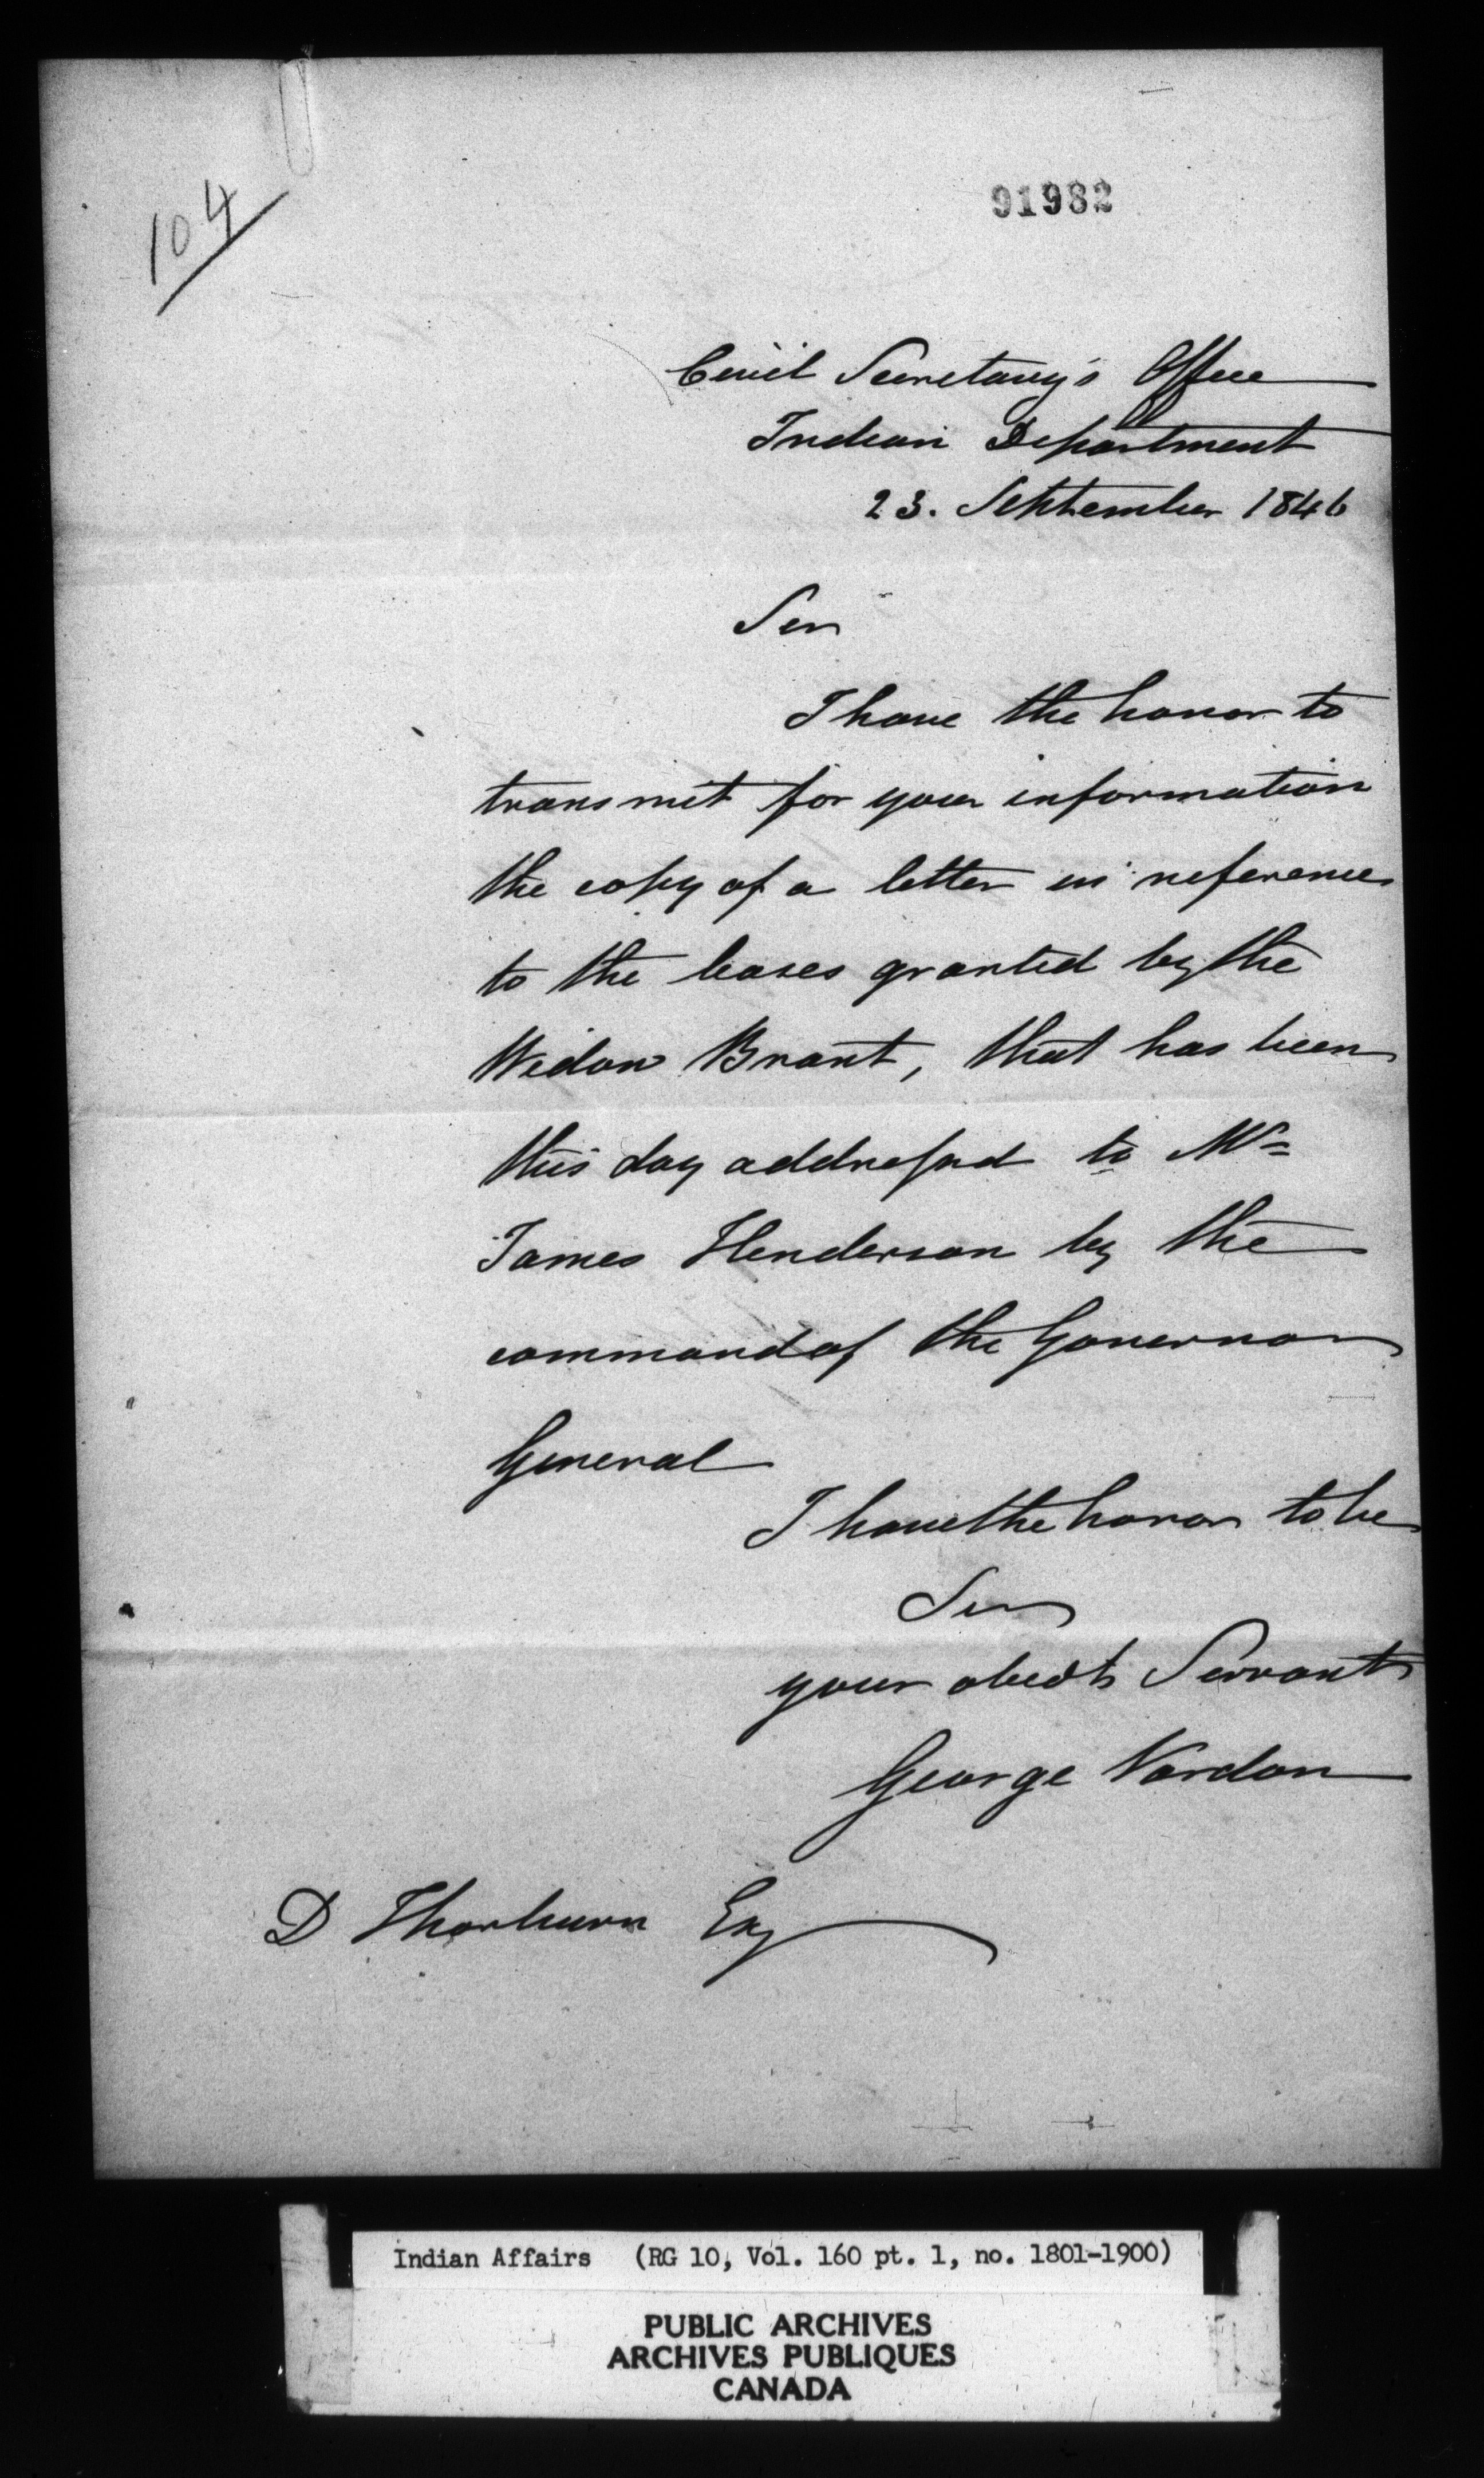 104
91982
Civil Secretary's Office
Indian Department
23. September 1846
Sir
I have the honor to
transmit for your information
the copy of a letter in reference
to the leases granted by the
Widow Brant, that has been
this day addressed to Mr
James Henderson by the
command of the Governor
General
I have the honor to be
Sir
your obedt Servant
George Vardon
D Thorburn Esq
Indian Affairs (RG 10, Vol. 160 pt. 1, no. 1801-1900)
PUBLIC ARCHIVES
ARCHIVES PUBLIQUES
CANADA